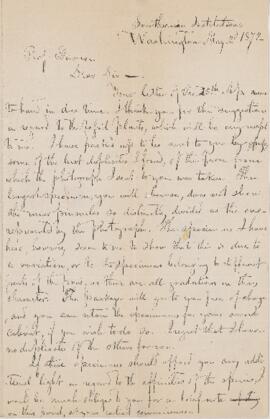 Smithsonian Institution
Washington May 1872
Prof
Dear Sir —
Your letter of the 25th
to hand in due time. I thank you for the suggestion
in regard to the fossil plants, which will be
to me. I have packed up to be sent to you by express
some of the best duplicates I found, of the from
which the photograph I sent to you was taken. The
largest specimen, you will I, does not show
the so distinctly divided as the one
represented by the photograph. The specimens I have
here, however, seem to me to show that this is due to
a variation, or to the specimens belonging to different
parts of the frond, as there are all gradations in this
character. The package will go to you free of charge
and you can retain the specimens for your own
cabinet, if you wish to do so. I regret that I have
no duplicates of the others for you.
If these specimens should afford you any addi-
tional light in regard to the affinities of the
will be much obliged to you for a brief note
on this, at your earliest convenience.